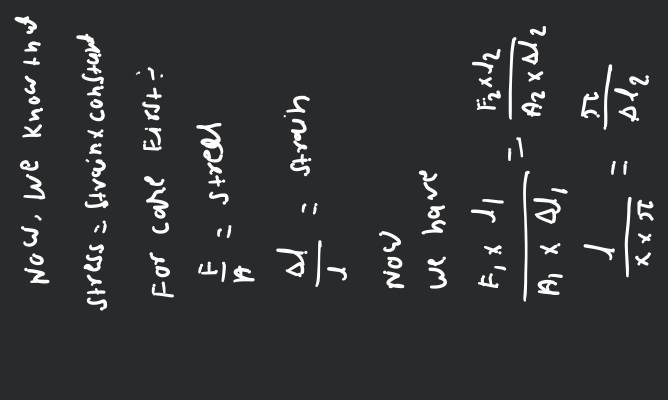 Now, we know that
stress = strain x constant
For case First :
F/A = stress
Δl/l = strain
Now
we have
F₁ x l₁ / A₁ x Δl₁ = F₂ x l₂ / A₂ x Δl₂
l / x x π = π / Δl₂